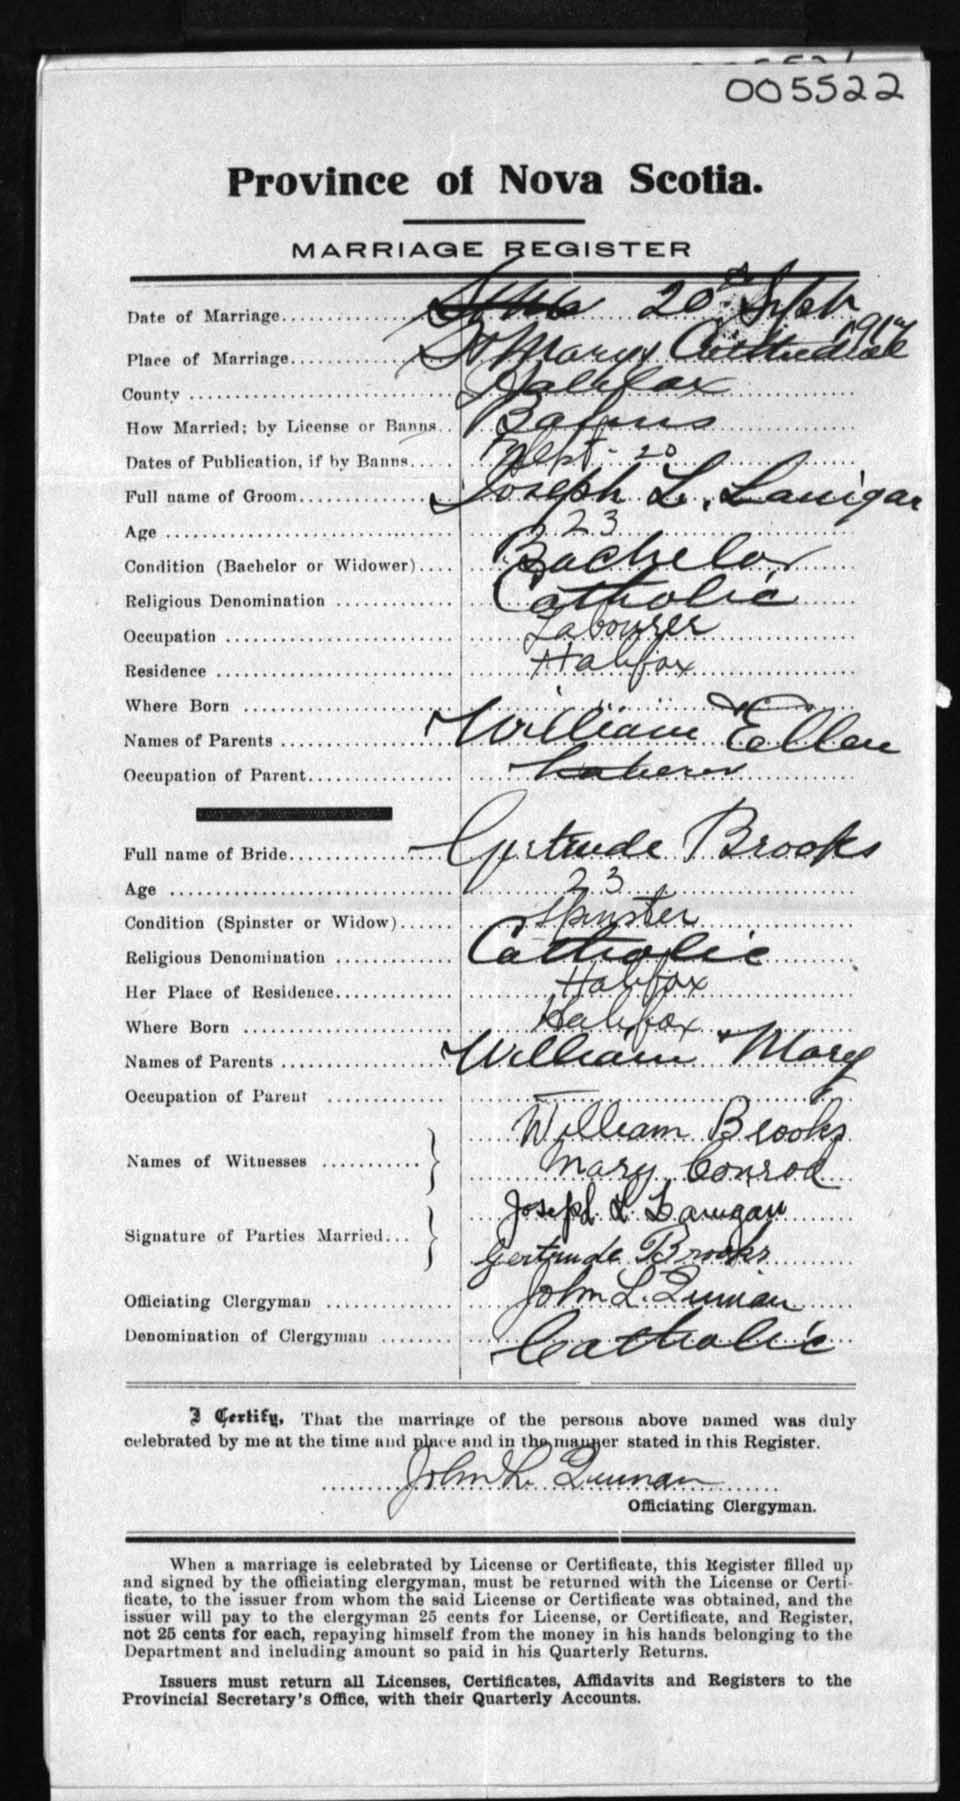 005522
Province of Nova Scotia.
MARRIAGE REGISTER
Date of Marriage 20th Sept 1917
Place of Marriage St Marys Cathedral
County Halifax
How Married; by License or Banns Banns
Dates of Publication, if by Banns Sept - 20
Full name of Groom Joseph L. Lanigan
Age 23
Condition (Bachelor or Widower) Bachelor
Religious Denomination Catholic
Occupation Labourer
Residence Halifax
Where Born "
Names of Parents William & Ellen
Occupation of Parent
Full name of Bride Gertrude Brooks
Age 23
Condition (Spinster or Widow) Spinster
Religious Denomination Catholic
Her Place of Residence Halifax
Where Born Halifax
Names of Parents William & Mary
Occupation of Parent —
William Brooks
Names of Witnesses Mary Conrod
Joseph L. Lanigan
Signature of Parties Married
Gertrude Brooks
Officiating Clergyman John L. Quinan
Denomination of Clergyman Catholic
I Certify, That the marriage of the persons above named was duly
celebrated by me at the time and place and in the manner stated in this Register.
John L. Quinan
Officiating Clergyman.
When a marriage is celebrated by License or Certificate, this Register filled up
and signed by the officiating clergyman, must be returned with the License or Certi-
ficate, to the issuer from whom the said License or Certificate was obtained, and the
issuer will pay to the clergyman 25 cents for License, or Certificate, and Register,
not 25 cents for each, repaying himself from the money in his hands belonging to the
Department and including amount so paid in his Quarterly Returns.
Issuers must return all Licenses, Certificates, Affidavits and Registers to the
Provincial Secretary's Office, with their Quarterly Accounts.